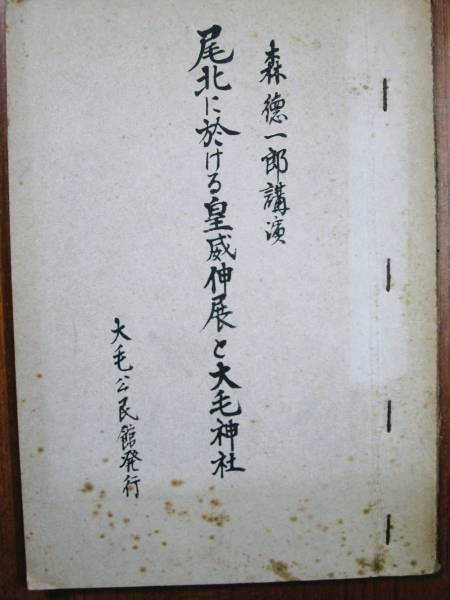 森德一郎講演
尾北に於ける皇威伸展と大毛神社
大毛公民館発行